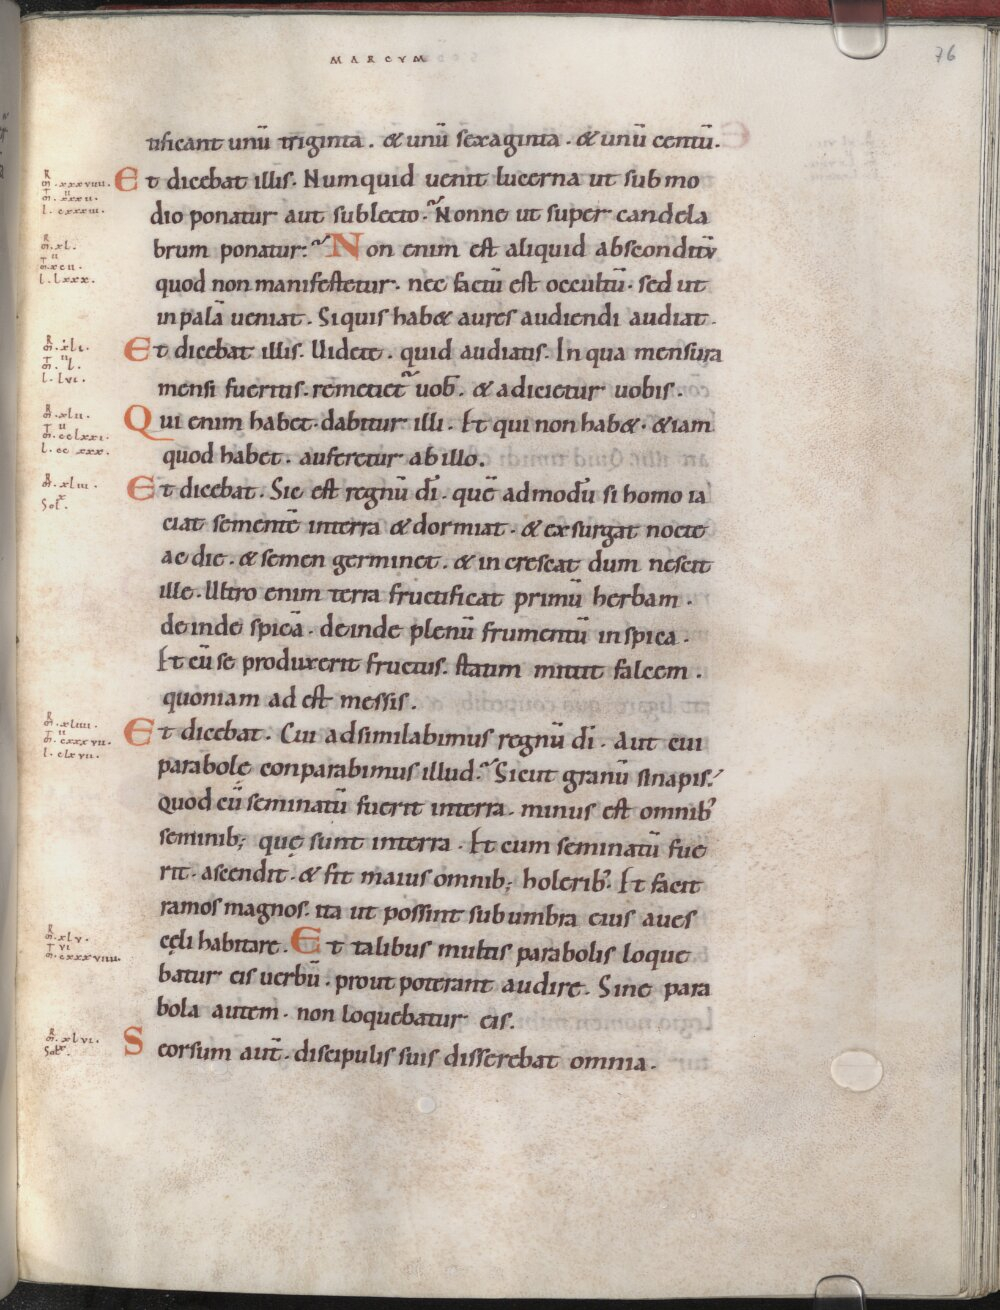 MARCVM
76
tificant unū triginta . & unū sexaginta . & unū centū.
R
M . xxxviiii.
M . xxxii.
L . cxxxiii.
Et dicebat illis. Numquid uenit lucerna ut sub mo
dio ponatur aut sub lecto. Nonne ut super candela
R
M . xl.
M . xcii.
L . lxxx.
brum ponatur: Non enim est aliquid absconditū
quod non manifestetur . nec factū est occultū . sed ut
in palā ueniat . Siquis hab& aures audiendi audiat .
R
M . xli.
L . lvi.
Et dicebat illis. Uidete . quid audiatis. In qua mensura
mensi fueritis . remetietur uob̄ . & adicietur uobis .
R
M . xlii.
M . cclxxi.
L . cc xxx.
Qui enim habet . dabitur illi . Et qui non hab& . & iam
quod habet . auferetur ab illo.
R
M . xliii.
Sol.
Et dicebat . Sic est regnū dī . quē admodū si homo ia
ciat sementē in terra & dormiat . & exsurgat nocte
ac die . & semen germinet . & increscat dum nescit
ille . Ultro enim terra fructificat primū herbam .
deinde spicā . deinde plenū frumentū in spica .
Et cū se produxerit fructus . statim mittit falcem .
quoniam ad est messis .
R
M . xliiii.
M . cxxxvii.
L . clxvii.
Et dicebat . Cui adsimilabimus regnū dī . Aut cui
parabolę conparabimus illud. Sicut granū sinapis.
Quod cū seminatū fuerit in terra . minus est omnib;
seminib; quę sunt in terra . Et cum seminatū fue
rit . ascendit . & fit maius omnib; holerib; Et facit
ramos magnos . ita ut possint sub umbra eius aues
R
M . xlv.
T vi
M . cxxxviiii.
cęli habitare . Et talibus multis parabolis loque
batur eis uerbū . prout poterant audire . Sine para
bola autem . non loquebatur eis.
R
M . xlvi.
Sol.
Seorsum aut̄ . discipulis suis disserebat omnia .